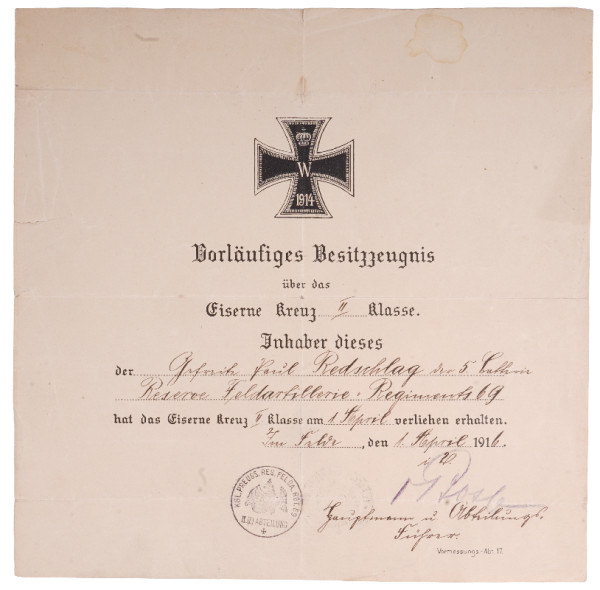 W
1914
Vorläufiges Besitzzeugnis
über das
Eiserne Kreuz II Klasse.
Inhaber dieses
der Gefreite Paul Redschlag der 5. Batterie
Reserve Feldartillerie-Regiments 69
hat das Eiserne Kreuz II Klasse am 1 April verliehen erhalten.
Im Felde, den 1. April 1916.
KGL.PREUSS.RES.FELDA.RGT.69
Hauptmann u. Abteilungs-
Führer.
Vermessungs-Abt. 17.